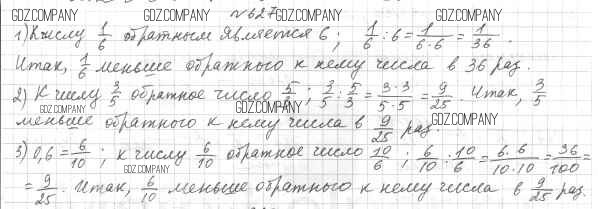 GDZ.COMPANY GDZ.COMPANY №627 GDZ.COMPANY GDZ.COMPANY
1) К числу 1/6 обратным является 6; 1/6 : 6 = 1/(6·6) = 1/36.
Итак, 1/6 меньше обратного к нему числа в 36 раз.
2) К числу 3/5 обратное число 5/3; 3/5 : 5/3 = (3·3)/(5·5) = 9/25. Итак, 3/5
GDZ.COMPANY GDZ.COMPANY GDZ.COMPANY
меньше обратного к нему числа в 9/25 раз.
3) 0,6 = 6/10; к числу 6/10 обратное число 10/6; 6/10 : 10/6 = (6·6)/(10·10) = 36/100 =
GDZ.COMPANY GDZ.COMPANY
= 9/25. Итак, 6/10 меньше обратного к нему числа в 9/25 раз.